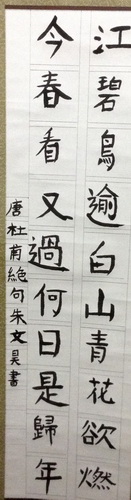 江碧鳥逾白山青花欲燃
今春看又過何日是歸年
唐杜甫絕句朱文昊書